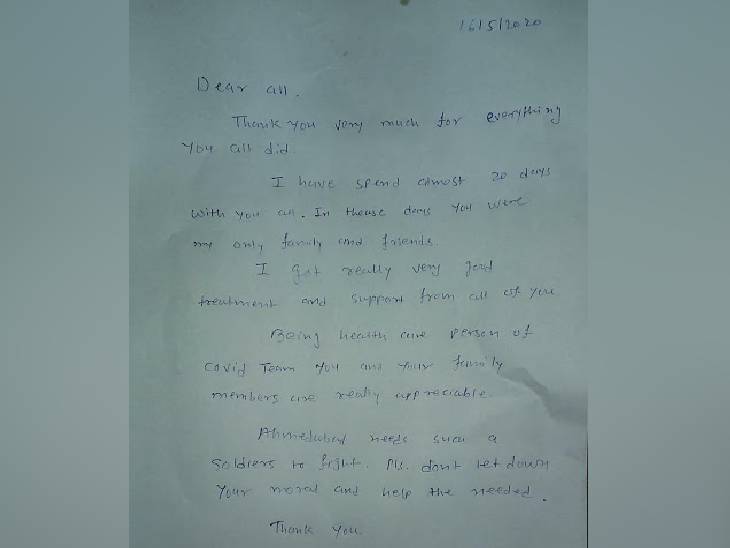 16/5/2020
Dear all.
Thank you very much for everything
you all did.
I have spend almost 20 days
with you all. In thease days you were
my only family and friends.
I got really very good
treatment and support from all of you
Being health care person of
Covid Team you and your family
members are really appreciable.
Ahmedabad needs such a
soldiers to fight. Pls. dont let down
your moral and help the needed.
Thank you.